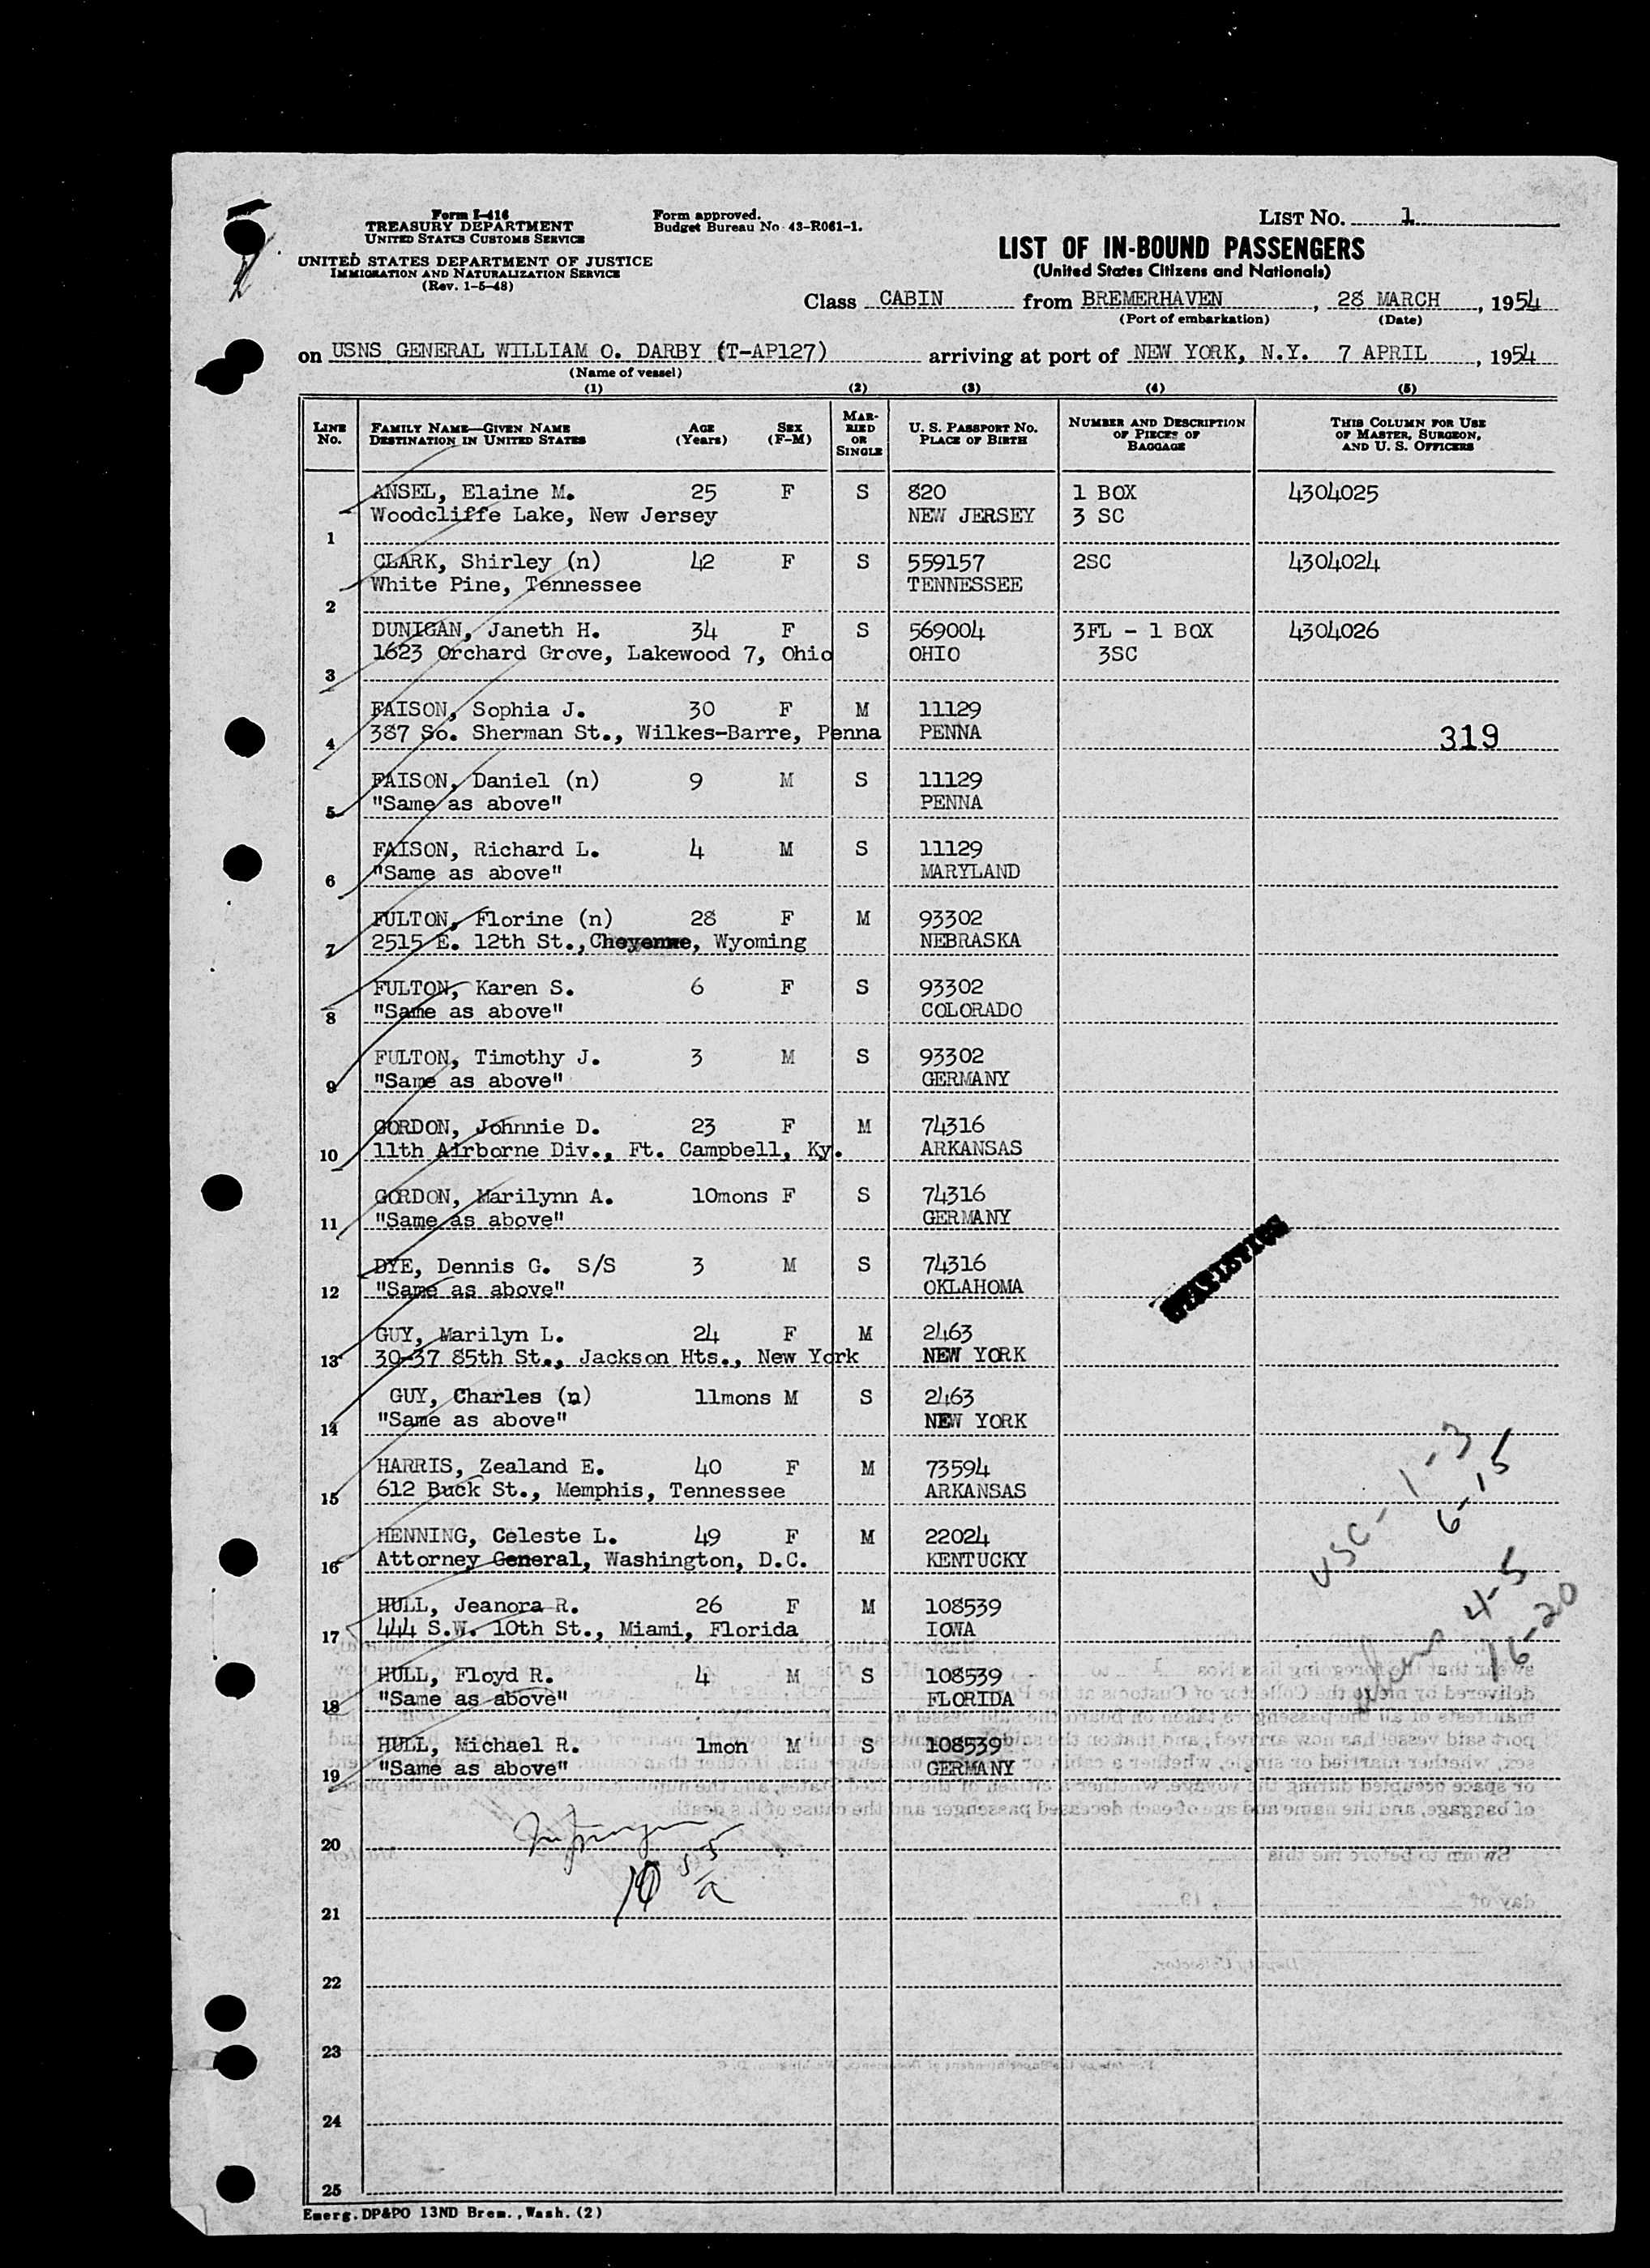 Form I-416
TREASURY DEPARTMENT
UNITED STATES CUSTOMS SERVICE
UNITED STATES DEPARTMENT OF JUSTICE
IMMIGRATION AND NATURALIZATION SERVICE
(Rev. 1-5-48)
Form approved.
Budget Bureau No. 43-R061-1.
LIST NO. 1
LIST OF IN-BOUND PASSENGERS
(United States Citizens and Nationals)
Class CABIN from BREMERHAVEN, 28 MARCH, 1954
(Port of embarkation) (Date)
on USNS GENERAL WILLIAM O. DARBY (T-AP127) arriving at port of NEW YORK, N.Y. 7 APRIL, 1954
(Name of vessel)
(1) (2) (3) (4) (5)
LINE NO. FAMILY NAME—GIVEN NAME DESTINATION IN UNITED STATES AGE (Years) SEX (F-M) MARRIED OR SINGLE U. S. PASSPORT NO. PLACE OF BIRTH NUMBER AND DESCRIPTION OF PIECES OF BAGGAGE THIS COLUMN FOR USE OF MASTER, SURGEON, AND U. S. OFFICERS
ANSEL, Elaine M. 25 F S 820 1 BOX 4304025
Woodcliffe Lake, New Jersey NEW JERSEY 3 SC
1
CLARK, Shirley (n) 42 F S 559157 2SC 4304024
White Pine, Tennessee TENNESSEE
2
DUNIGAN, Janeth H. 34 F S 569004 3FL - 1 BOX 4304026
1623 Orchard Grove, Lakewood 7, Ohio OHIO 3SC
3
FAISON, Sophia J. 30 F M 11129
387 So. Sherman St., Wilkes-Barre, Penna PENNA 319
4
FAISON, Daniel (n) 9 M S 11129
"Same as above" PENNA
5
FAISON, Richard L. 4 M S 11129
"Same as above" MARYLAND
6
FULTON, Florine (n) 28 F M 93302
2515 E. 12th St., Cheyenne, Wyoming NEBRASKA
7
FULTON, Karen S. 6 F S 93302
"Same as above" COLORADO
8
FULTON, Timothy J. 3 M S 93302
"Same as above" GERMANY
9
GORDON, Johnnie D. 23 F M 74316
11th Airborne Div., Ft. Campbell, Ky. ARKANSAS
10
GORDON, Marilynn A. 10mons F S 74316
"Same as above" GERMANY
11
DYE, Dennis G. S/S 3 M S 74316
"Same as above" OKLAHOMA
12
STATISTICS
GUY, Marilyn L. 24 F M 2463
30-37 85th St., Jackson Hts., New York NEW YORK
13
GUY, Charles (n) 11mons M S 2463
"Same as above" NEW YORK
14
HARRIS, Zealand E. 40 F M 73594
612 Buck St., Memphis, Tennessee ARKANSAS
15
USC - 1-3
6-15
HENNING, Celeste L. 49 F M 22024
Attorney General, Washington, D.C. KENTUCKY
16
4-5
16-20
HULL, Jeanora R. 26 F M 108539
444 S.W. 10th St., Miami, Florida IOWA
17
HULL, Floyd R. 4 M S 108539
"Same as above" FLORIDA
18
HULL, Michael R. 1mon M S 108539
"Same as above" GERMANY
19
20
21
22
23
24
25
Emerg. DP&PO 13ND Brem., Wash. (2)